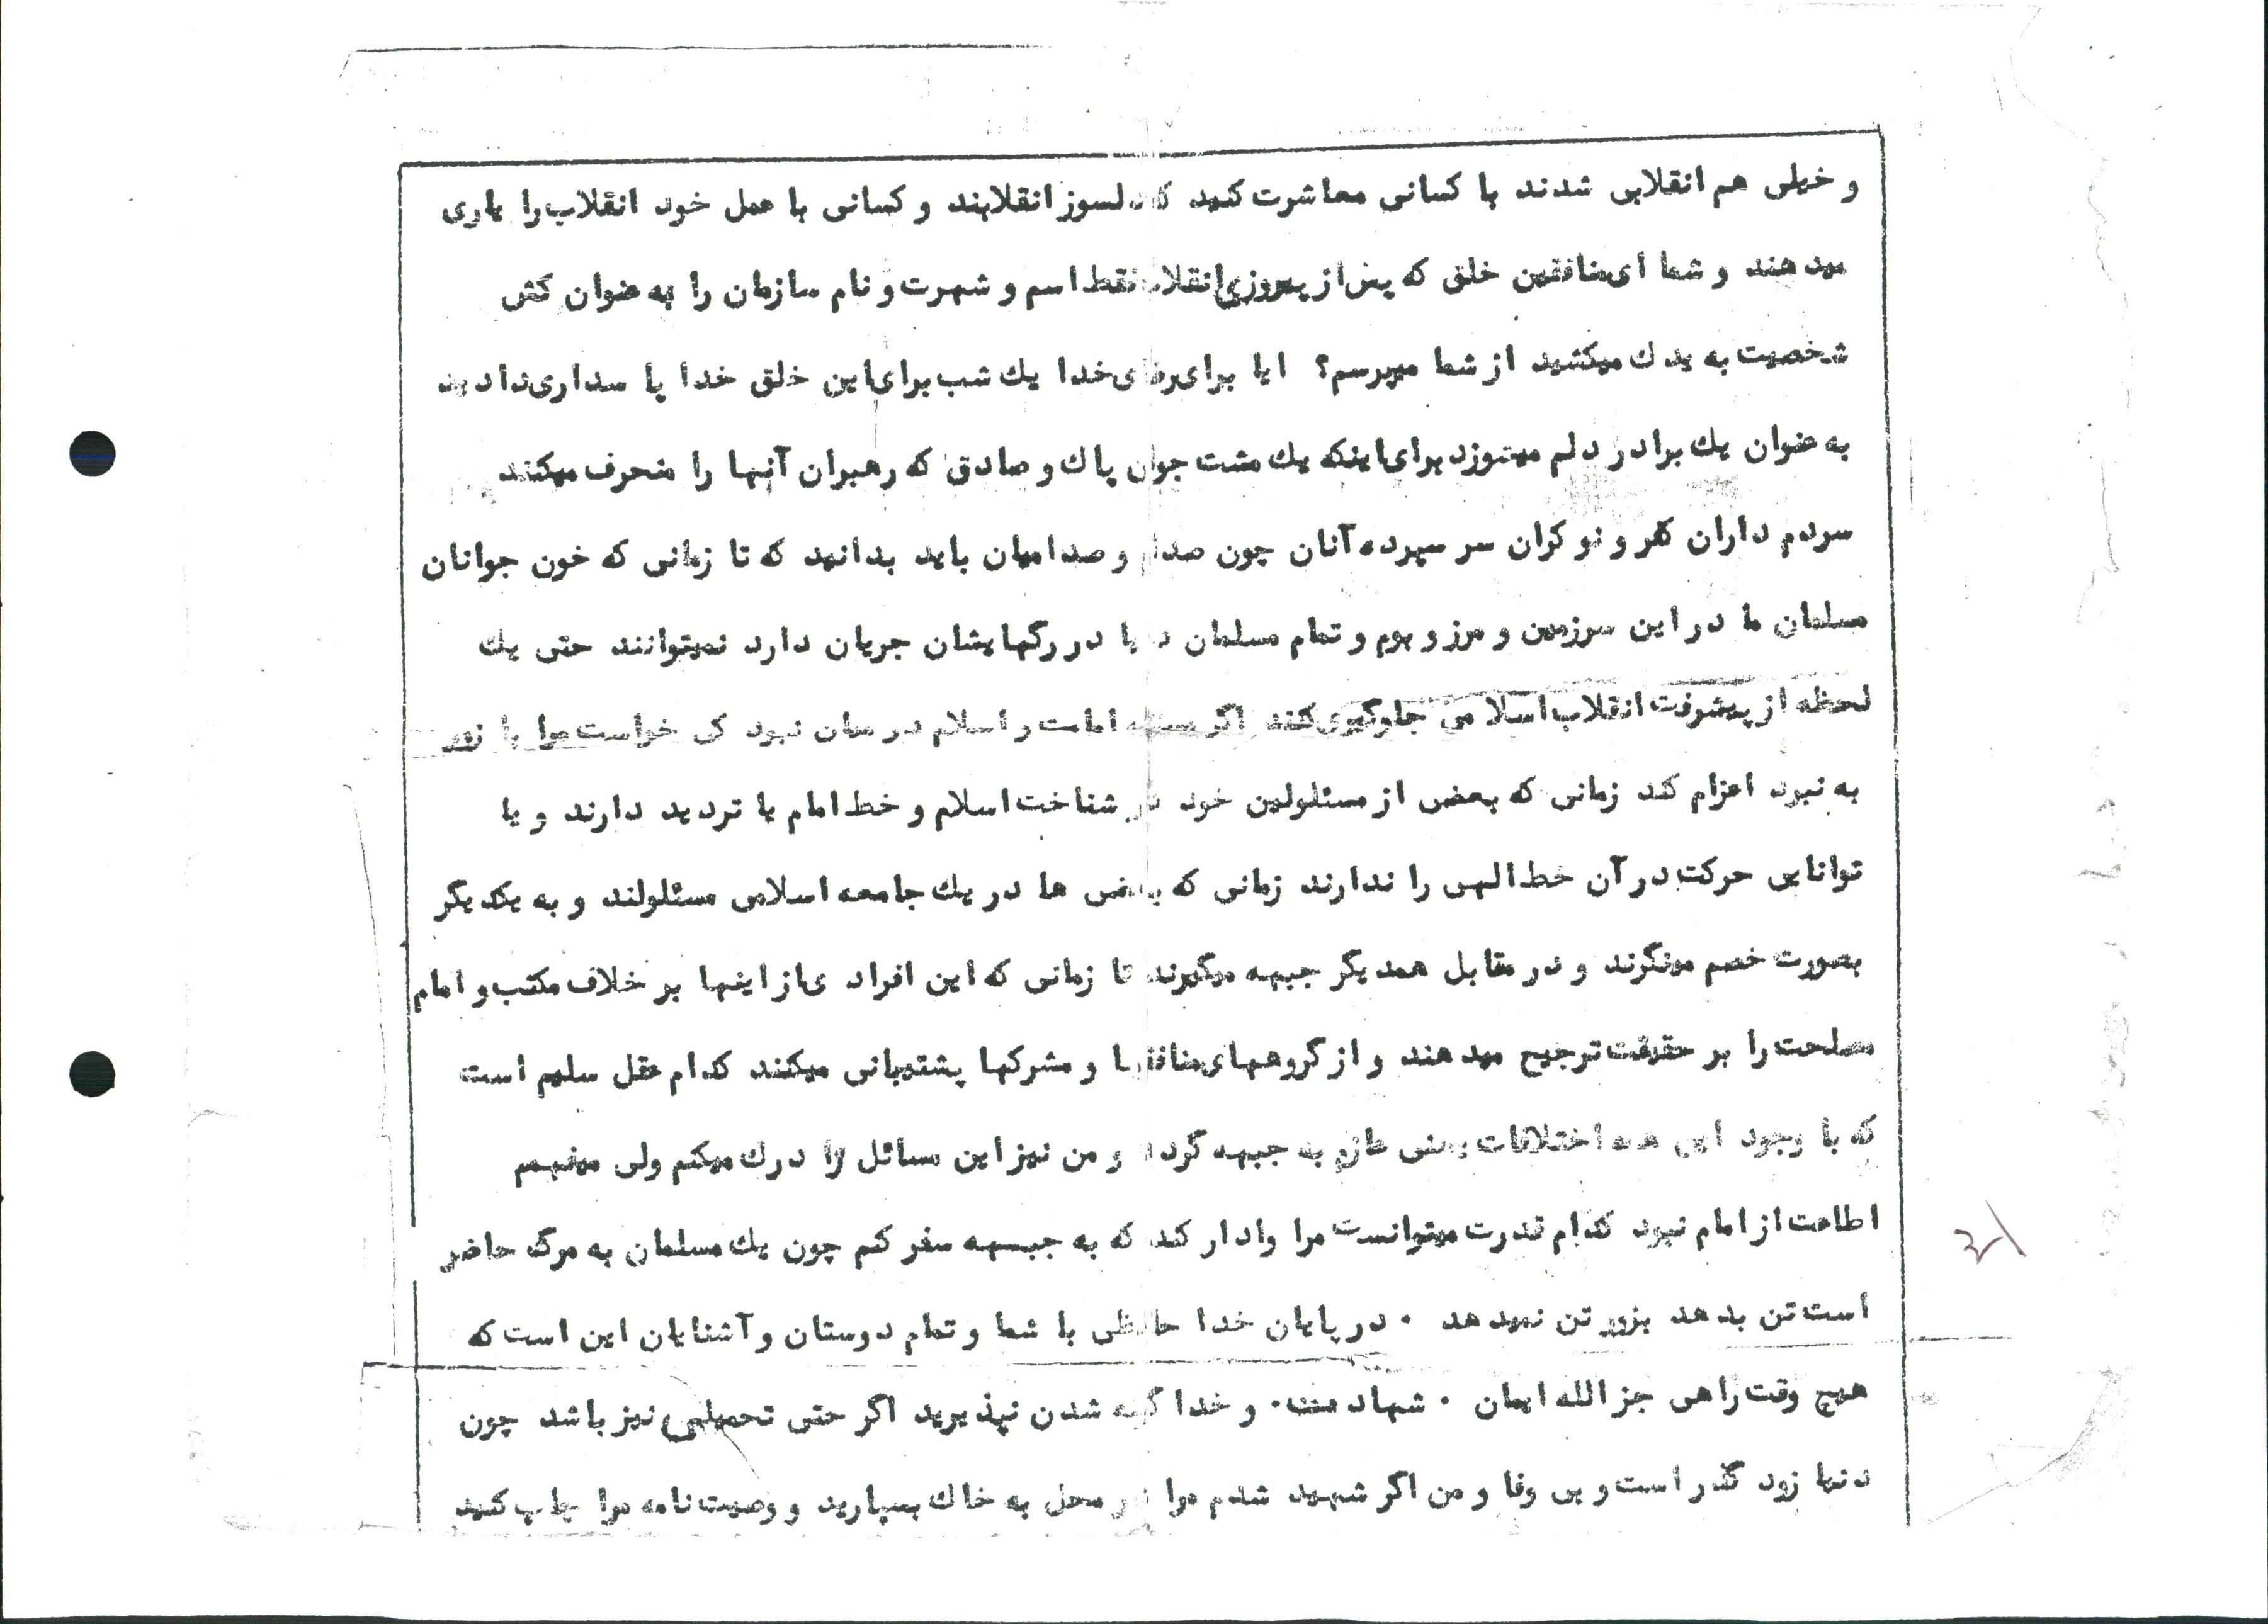 و خیلی هم انقلابی شدند با کسانی معاشرت کنید که دلسوز انقلابند و کسانی با عمل خود انقلاب را یاری
میدهند و شما ای منافقین خلق که پس از پیروزی انقلاب فقط اسم و شهرت و نام سازمان را به عنوان کش
شخصیت به یدک میکشید از شما میپرسم؟ ایا برای رضای خدا یک شب برای این خلق خدا پا سداری دادید
به عنوان یک برادر دلم میسوزد برای اینکه یک مشت جوان پاک و صادق که رهبران آنها را منحرف میکنند
سردم داران کفر و نو کران سر سپرده آنان چون صدام و صدامیان باید بدانید که تا زمانی که خون جوانان
مسلمان ما در این سرزمین و مرز و بوم و تمام مسلمان دنیا در رگهایشان جریان دارد نمیتوانند حتی یک
لحظه از پیشرفت انقلاب اسلا می جلوگیری کنند اگر مسئله امامت و اسلام در میان نبود کی خواست مرا با زور
به نبرد اعزام کند زمانی که بعضی از مسئلولین خود در شناخت اسلام و خط امام یا تردید دارند و یا
توانایی حرکت در آن خط الهی را ندارند زمانی که بعضی ها در یک جامعه اسلامی مسئلولند و به یکدیگر
بصورت خصم مینگرند و در مقابل همدیگر جبهه میگیرند تا زمانی که این افراد ی از اینها بر خلاف مکتب و امام
مصلحت را بر حقیقت ترجیح میدهند و از گروههای منافقها و مشرکها پشتیبانی میکنند کدام عقل سلیم است
که با وجود این همه اختلافات یعنی عازم به جبهه گردد و من نیز این مسائل را درک میکنم ولی میفهمم
اطاعت از امام نبود کدام قدرت میتوانست مرا وادار کند که به جبهه سفر کنم چون یک مسلمان به مرگ حاضر
است تن بدهد بزور تن نمیدهد ۰ در پایان خدا حافظی با شما و تمام دوستان و آشنایان این است که
هیچ وقت راهی جز الله ایمان ۰ شهادت ۰ و خدا گونه شدن نپذیرید اگر حتی تحمیلی نیز باشد چون
دنیا زود گذر است و بی وفا و من اگر شهید شدم مرا در محل به خاک بسپارید و وصیت نامه مرا چاپ کنید